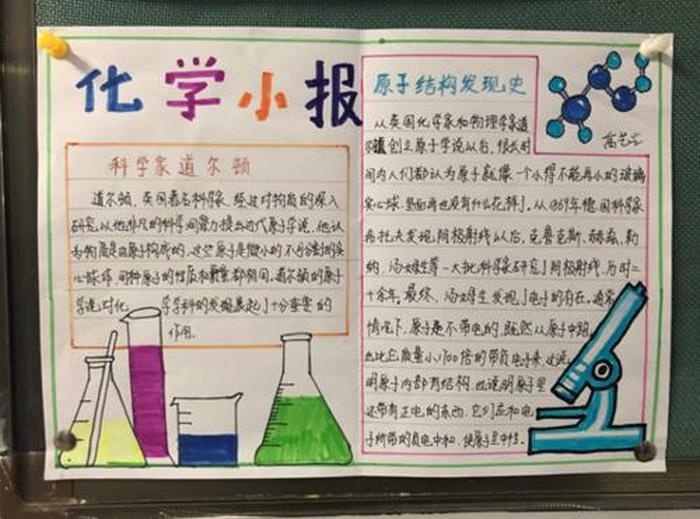 化学小报
科学家道尔顿
道尔顿，英国著名科学家，经过对物质的深入
研究，以他非凡的科学洞察力提出近代原子学说，他认
为物质是由原子构成的，这些原子是微小的不可分割的实
心球体，同种原子的性质和质量都相同，道尔顿的原子
学说对化 学学科的发展起了十分重要的
作用.
原子结构发现史
从英国化学家和物理学家道
尔顿创立原子学说以后，很长时
间内人们都认为原子就像一个小得不能再小的玻璃
实心球，里面再也没有什么花样了。从1869年德国科学家
希托夫发现阴极射线以后，克鲁克斯、赫兹、勒
纳、汤姆生等一大批科学家研究了阴极射线，历时二
十余年，最终，汤姆生发现了电子的存在。通常
情况下，原子是不带电的，既然从原子中跑
出比它质量小1700倍的带负电子来，这说
明原子内部有结构，也说明原子里
还带有正电的东西，它们应和电
子所带的负电中和，使原子呈中性.